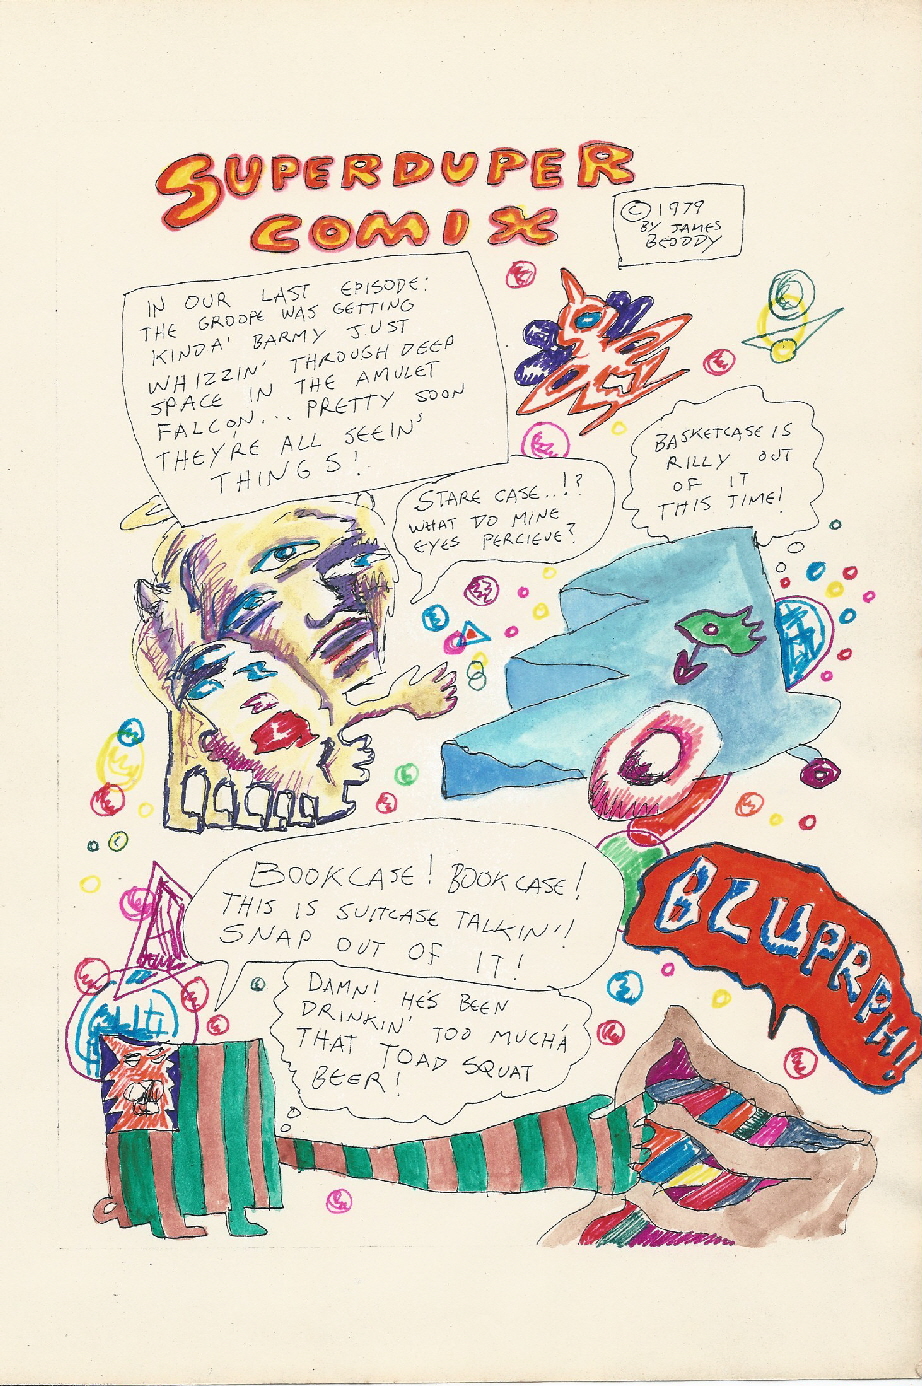 SUPERDUPER
COMIX
© 1979
BY JAMES
BEDDDY
IN OUR LAST EPISODE:
THE GROOPE WAS GETTING
KINDA' BARMY JUST
WHIZZIN' THROUGH DEEP
SPACE IN THE AMULET
FALCON... PRETTY SOON
THEY'RE ALL SEEIN'
THINGS!
STARE CASE..!?
WHAT DO MINE
EYES PERCIEVE?
BASKETCASE IS
RILLY OUT
OF IT
THIS TIME!
BOOKCASE! BOOKCASE!
THIS IS SUITCASE TALKIN'!
SNAP OUT OF IT!
BLUPRPH!
DAMN! HE'S BEEN
DRINKIN' TOO MUCHA
THAT TOAD SQUAT
BEER!